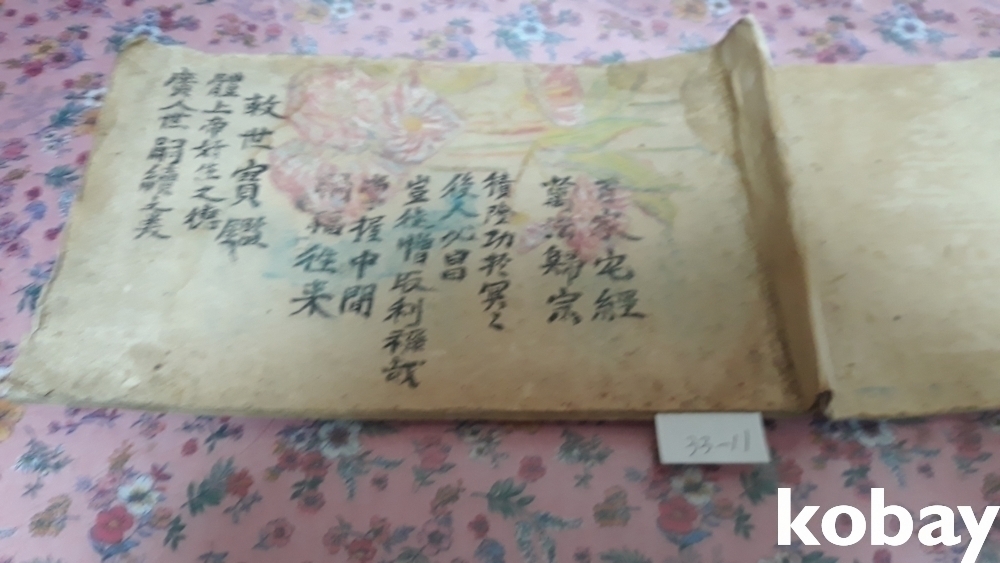 家宅經
萬法歸宗
積陰功於冥々
後人必昌
豈徒憎取利祿哉
掌握中間
禍福往来
救世寶鑑
體上帝好生之德
廣人世嗣續之美
33-11
kobay